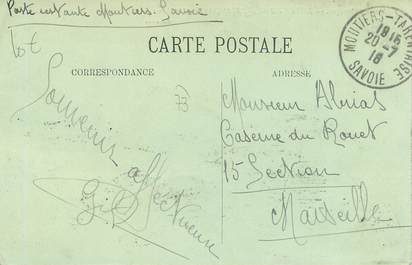 Poste restante Moutiers. Savoie
CARTE POSTALE
CORRESPONDANCE
ADRESSE
MOUTIERS-TARENTAISE
18
20-7
18
SAVOIE
73
Souvenir affectueuse
Monsieur
Caserne du Rouet
15 Section
Marseille